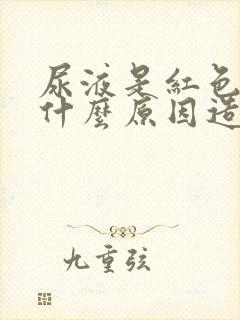 尿液是紅色
什麼原因造
九重弦